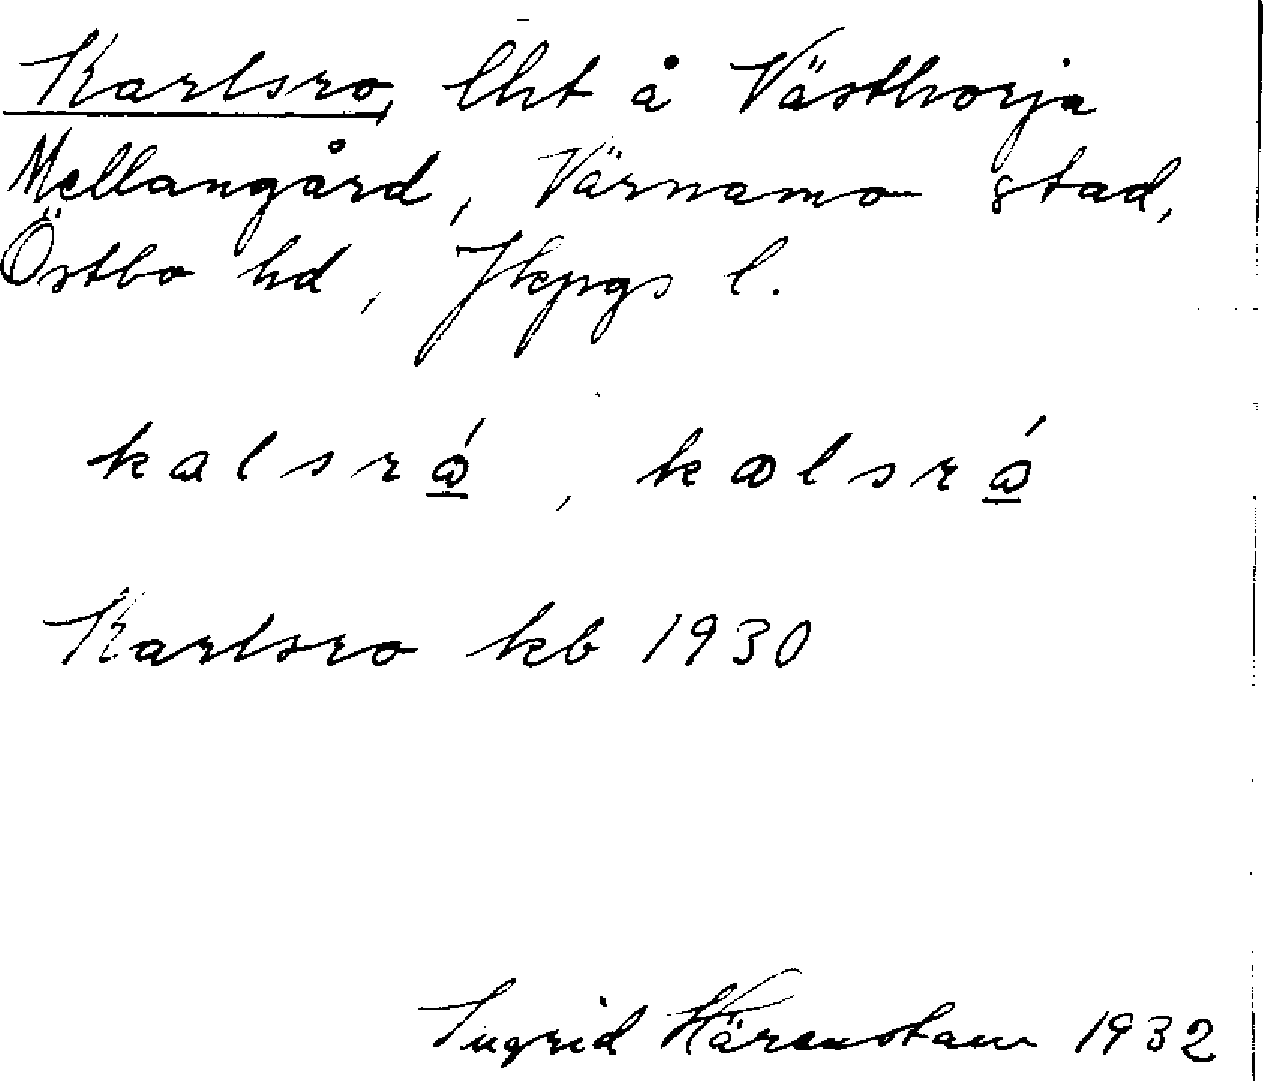 Karlsro, lht å Västhorja
Mellangård, Värnamo stad,
Östbo hd, Jkpgs l.
kalsró, kɒlsró
Karlsro kb 1930
Ingrid Härenstam 1932